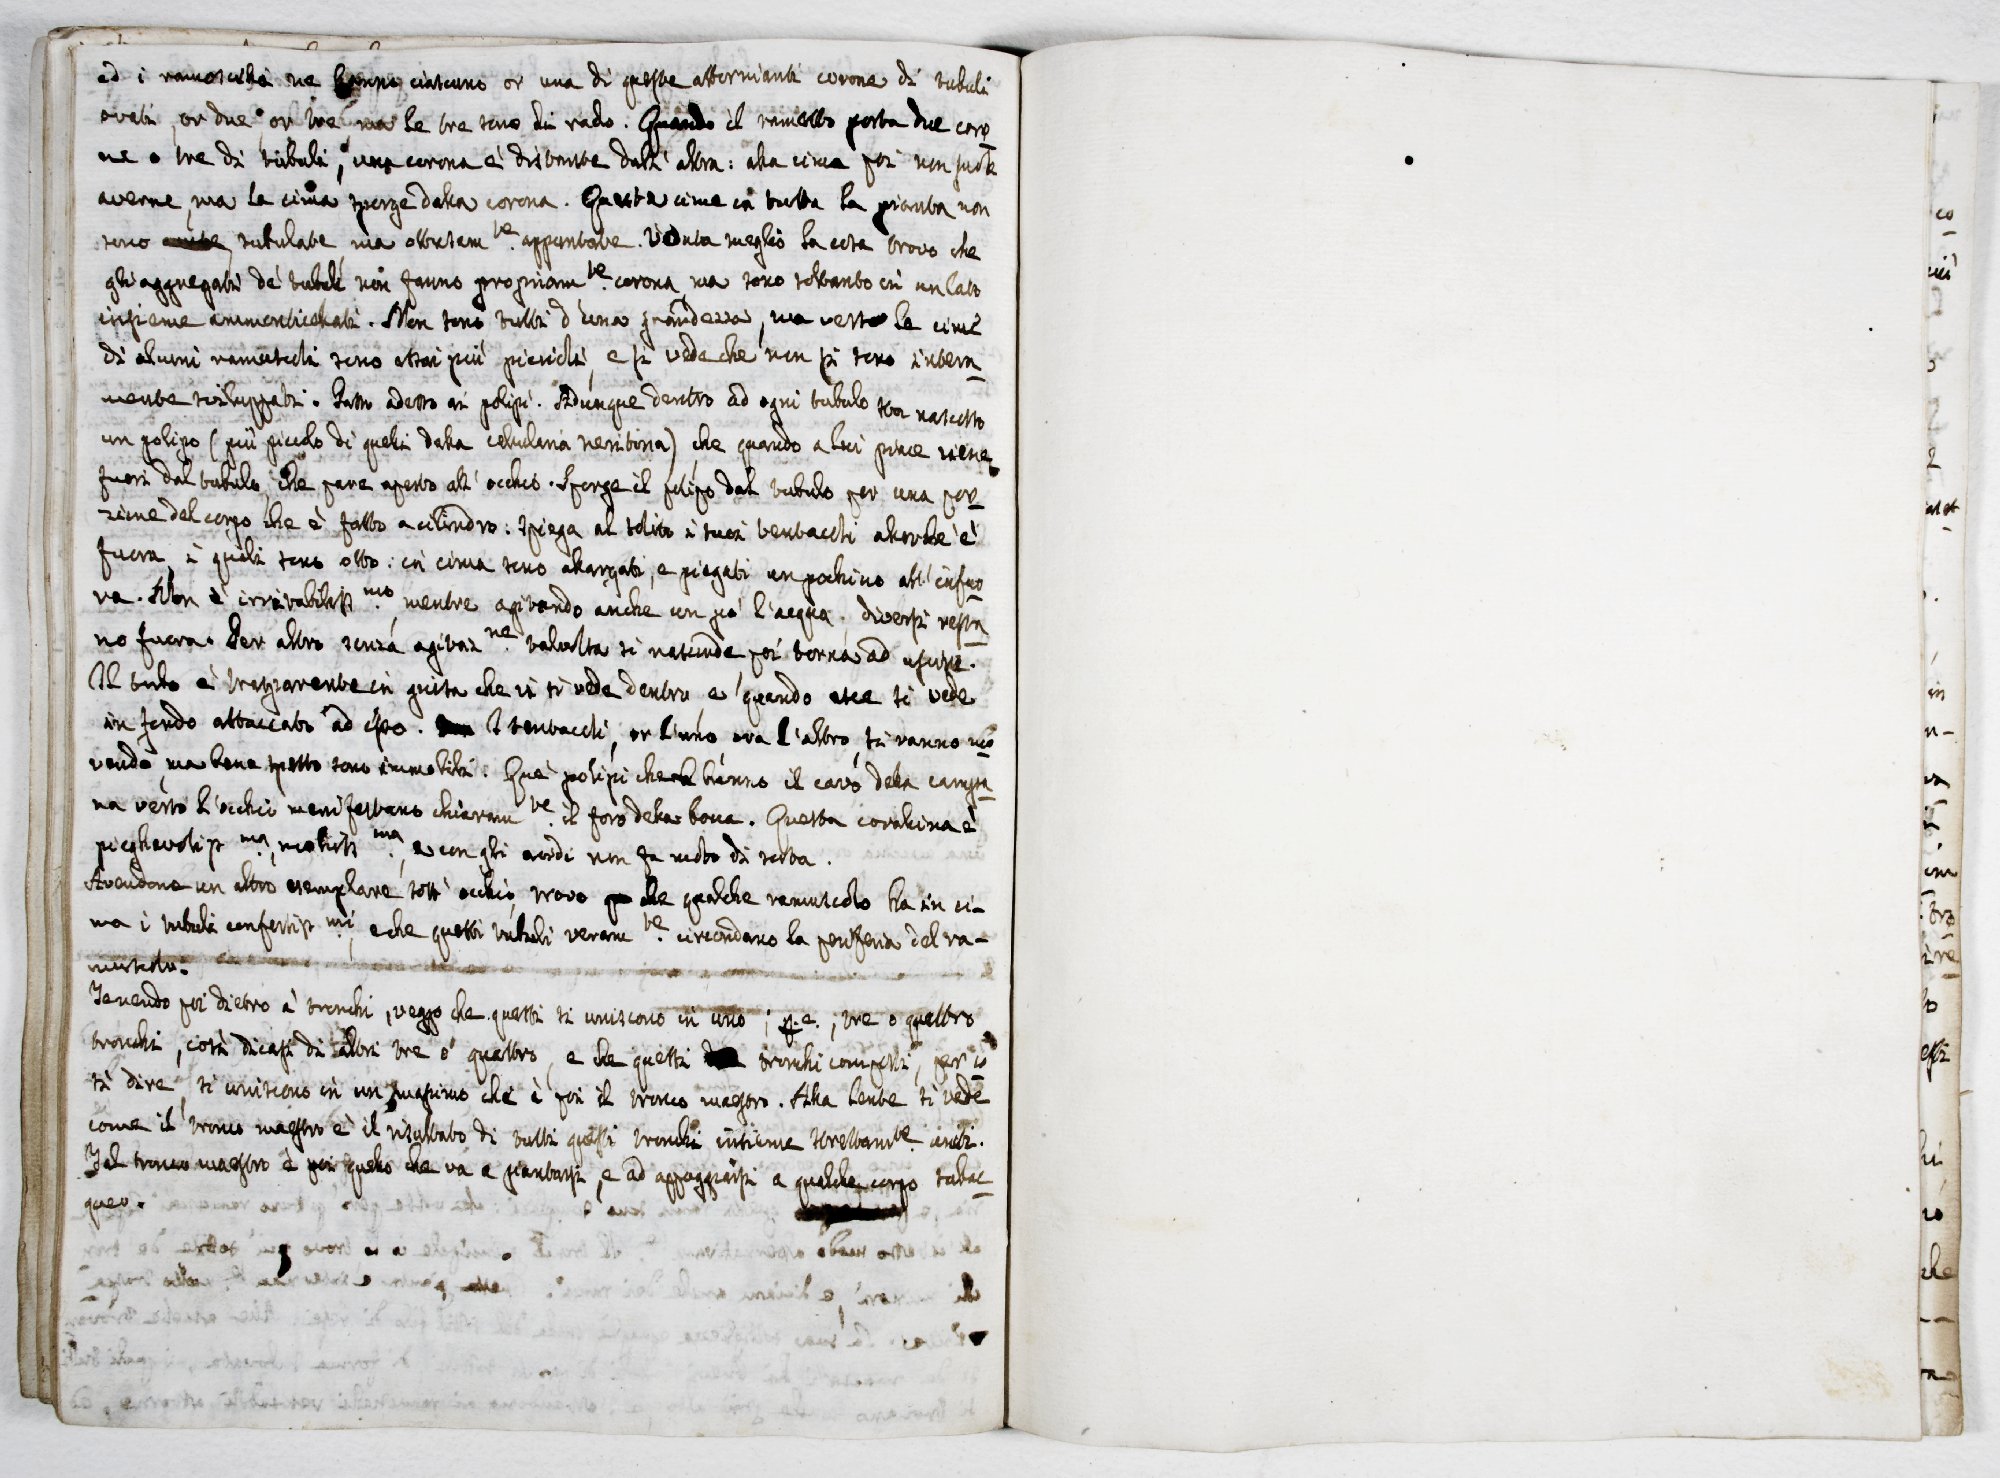 ed i ramoscelli ne hanno ciascuno or una di queste attornianti corone di tubuli
ovati, or due, or tre ma le tre sono di rado. Quando il rametto porta due coro
ne o tre di tubuli, una corona è distante dall' altra: alla cima poi non suole
averne, ma la cima sporge dalla corona. Queste cime in tutta la pianta non
sono tubulate ma ottusam.te appuntate. Veduta meglio la cosa trovo che
gli aggregati de' tubuli non fanno propriam.te corona, ma sono soltanto in un lato
insieme ammonticchiati. Non sono tutti d' una grandezza, ma verso le cime
di alcuni ramuscoli sono assai più piccioli, e si vede che non si sono intera
mente sviluppati. Passo adesso ai polipi. Adunque dentro ad ogni tubulo sta nascosto
un polipo (più piccolo di quelli della cellularia neritina) che quando a lui piace viene
fuori dal tubulo, che pare aperto all' occhio. Sporge il polipo dal tubulo per una por
zione del corpo che è fatto a cilindro: spiega al solito i suoi tentacoli allorché è
fuora, i quali sono otto: in cima sono allargati, e piegati un pochino all' infuo
ra. Non è irritabiliss.mo, mentre agitando anche un po' l'acqua. diversi resta
no fuora. Per altro senza agitaz.ne talvolta si nasconde poi torna ad uscire.
Il tubo è trasparente in guisa che vi si vede dentro, e quando esce si vede
in fondo attaccato ad esso. I tentacoli, or l'uno ora l'altro, si vanno mo
vendo, ma bene spesso sono immobili. Que' polipi che hanno il cavo della campa
na verso l'occhio manifestano chiaram.te il foro della bocca. Questa corallina è
pieghevoliss.ma, molliss.ma, e con gli acidi non fa moto di sorta.
Avendone un altro esemplare sott' occhio, trovo che qualche ramuscolo ha in ci-
ma i tubuli confertiss.mi, e che questi tubuli veram.te circondano la periferia del ra-
muscolo.
Tenendo poi dietro a' tronchi, veggo che questi si uniscono in uno; p.e., tre o quattro
tronchi, così dicasi di altri tre o quattro, e che questi tronchi composti, per co
sì dire, si uniscono in un massimo che è poi il tronco maestro. Alla lente si vede
come il tronco maestro è il risultato di tutti questi tronchi insieme strettam.te uniti.
Tal tronco maestro è poi quello che va a piantarsi, e ad appoggiarsi a qualche corpo subac
queo.